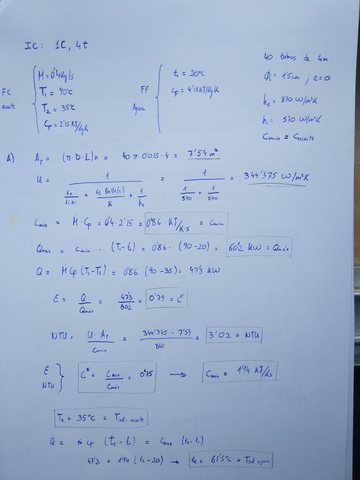 IC: 1C, 4t
FC aceite { M = 0'4 kg/s
T₁ = 90°C
T₂ = 35°C
Cp = 2'15 KJ/kgK
FF Agua { t₁ = 20°C
Cp = 4'18 KJ/kgK
40 tubos de 4m
= 1'5cm, e=0
h = 870 W/m²K
h = 570 W/m²K
Cmin = Caceite
A) A_T = (π·D·L)n = 40 π · 0'015 · 4 = 7'54 m²
U = 1 / ( + + 1/h) = 1 / (1/570 + 1/870) = 344'375 W/m²K
Cmin = M Cp = 0'4 · 2'15 = 0'86 KJ/K·s = Cmin
Qmax = Cmin · (T₁ - t₁) = 0'86 · (90-20) = 60'2 KW = Qmax
Q = M Cp (T₁-T₂) = 0'86 (90-35) = 47'3 KW
E = Q/Qmax = 47'3/60'2 = 0'79 = E
NTU = U · A_T / Cmin = 344'375 · 7'54 / 860 = 3'02 = NTU
E NTU } C* = Cmin/Cmax = 0'75 → Cmax = 1'14 KJ/Ks
T₂ = 35°C = Tsal. aceite
Q = m cp (t₂ - t₁) = Cmax (t₂-t₁)
47'3 = 1'14 (t₂-20) → t₂ = 61'5°C = Tsal agua